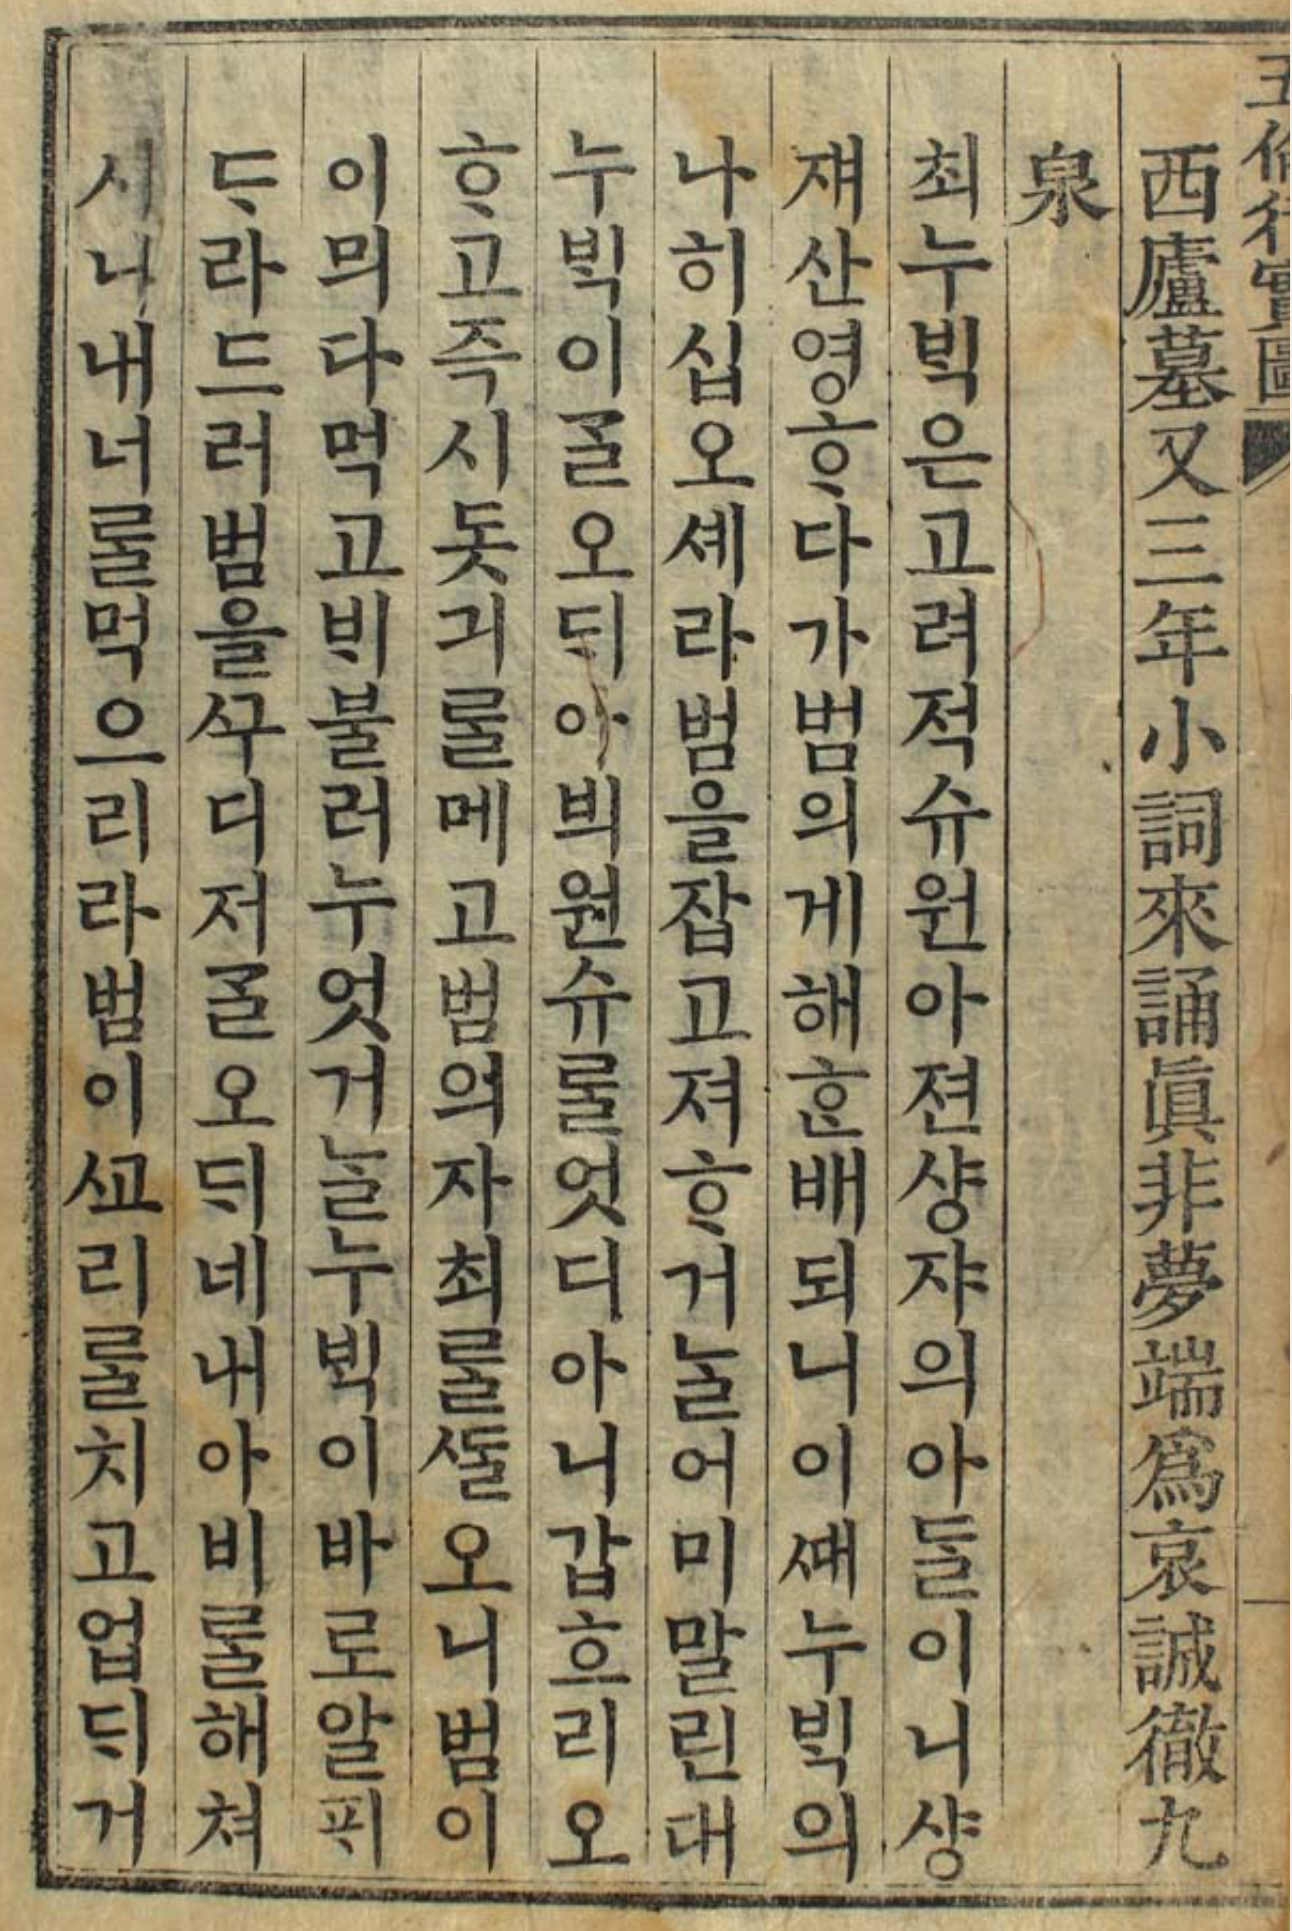 五倫行實圖
西廬墓又三年小詞來誦眞非夢端爲哀誠徹九
泉
최누ᄇᆡᆨ은고려적슈원아젼샹쟈의아ᄃᆞᆯ이니샹
쟤산영ᄒᆞ다가범의게해ᄒᆞᆫ배되니이ᄯᅢ누ᄇᆡᆨ의
나히십오셰라범을잡고져ᄒᆞ거ᄂᆞᆯ어미말린대
누ᄇᆡᆨ이ᄀᆞᆯ오ᄃᆡ아븨원슈ᄅᆞᆯ엇디아니갑흐리오
ᄒᆞ고즉시돗긔ᄅᆞᆯ메고범의자최ᄅᆞᆯᄯᆞᆯ오니범이
이믜다먹고ᄇᆡ불러누엇거ᄂᆞᆯ누ᄇᆡᆨ이바로알ᄑᆡ
ᄃᆞ라드러범을ᄭᅮ디저ᄀᆞᆯ오ᄃᆡ네내아비ᄅᆞᆯ해쳐
시니내너ᄅᆞᆯ먹으리라범이ᄭᅩ리ᄅᆞᆯ치고업ᄃᆡ거